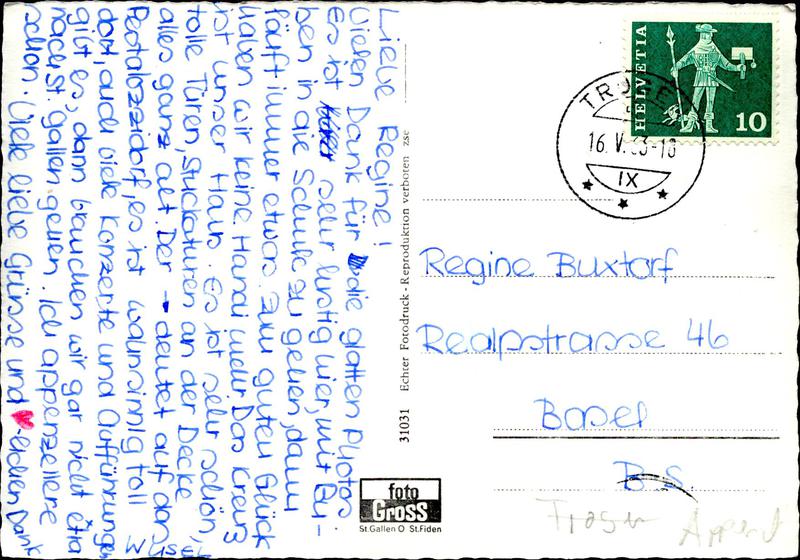 Liebe Regine!
Vielen Dank für die glatten Photos
Es ist sehr lustig hier, mit Bu-
ben in die Schule zu gehen, dann
läuft immer etwas. Zum guten Glück
haben wir keine Handi mehr. Das Kreuz
ist unser Haus. Es ist sehr schön,
tolle Türen, Stuckaturen an der Decke
alles ganz alt. Der → deutet auf das
Pestalozzidorf, es ist wahnsinnig toll
dort, auch viele Konzerte und Aufführungen
gibt es, dann brauchen wir gar nicht extra
nach St. Gallen gehen. Ich appenzellere
schon. Viele liebe Grüsse und ❤-lichen Dank
31031 Echter Fotodruck - Reproduktion verboten zse
HELVETIA
10
TROGEN
16. V. 63-18
IX
Regine Buxtorf
Realpstrasse 46
Basel
B.S.
Trogen Appenz
foto
GROSS
St.Gallen O St.Fiden